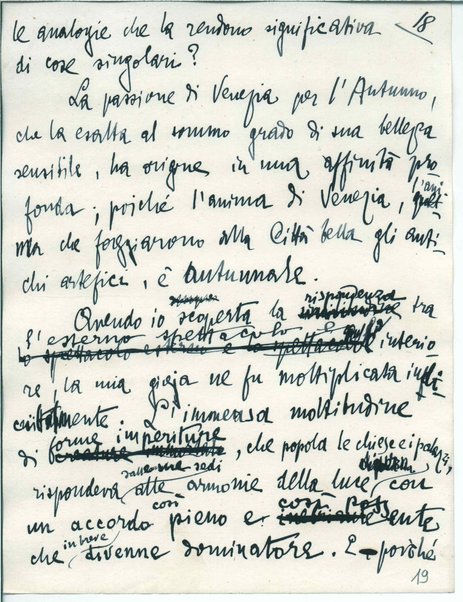 18
le analogie che la rendono significativa
di cose singolari?
La passione di Venezia per l'Autunno,
che la esalta al sommo grado di sua bellezza
sensibile, ha origine in una affinità pro
fonda; poiché l'anima di Venezia, l'ani
ma che foggiarono alla Città bella gli anti-
chi artefici, è autunnale.
Quando io scoperta la rispondenza tra
l'esterno spettacolo e interio
re, la mia gioja ne fu moltiplicata infi
nitamente. L'immensa moltitudine
di forme imperiture, che popola le chiese e i palazzi,
rispondeva dalle sue sedi alle armonie della luce con
un accordo così pieno e così poss ente
che in breve divenne dominatore. E - poiché
19